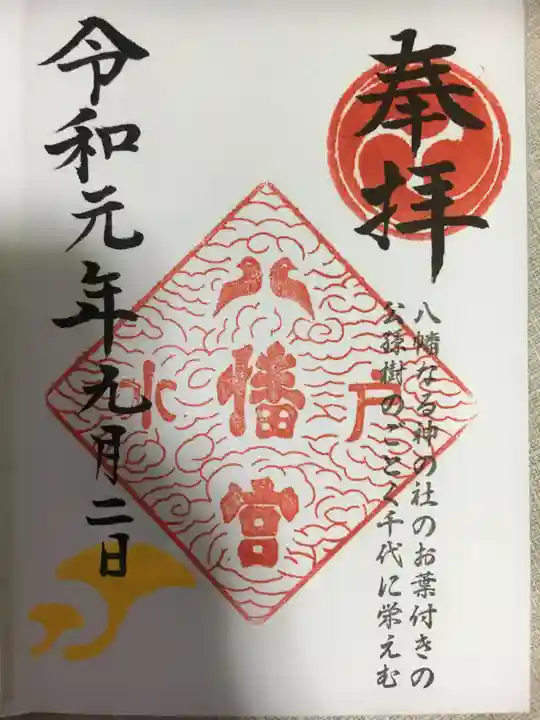 奉拝
八幡なる神の社のお葉付きの
公孫樹のごとく千代に栄えむ
水戸
八幡宮
令和元年九月二日